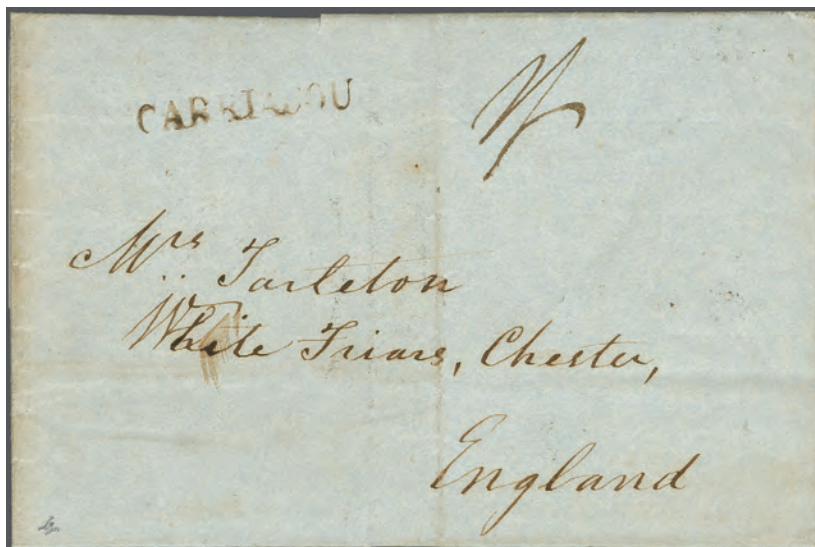 CARRIACOU
1/
Mrs Tarleton
White Friars, Chester,
England